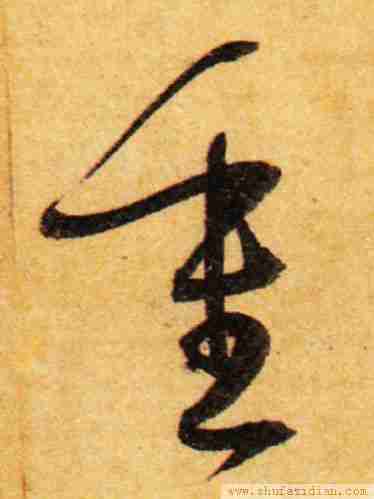 重
www.shufazidian.com